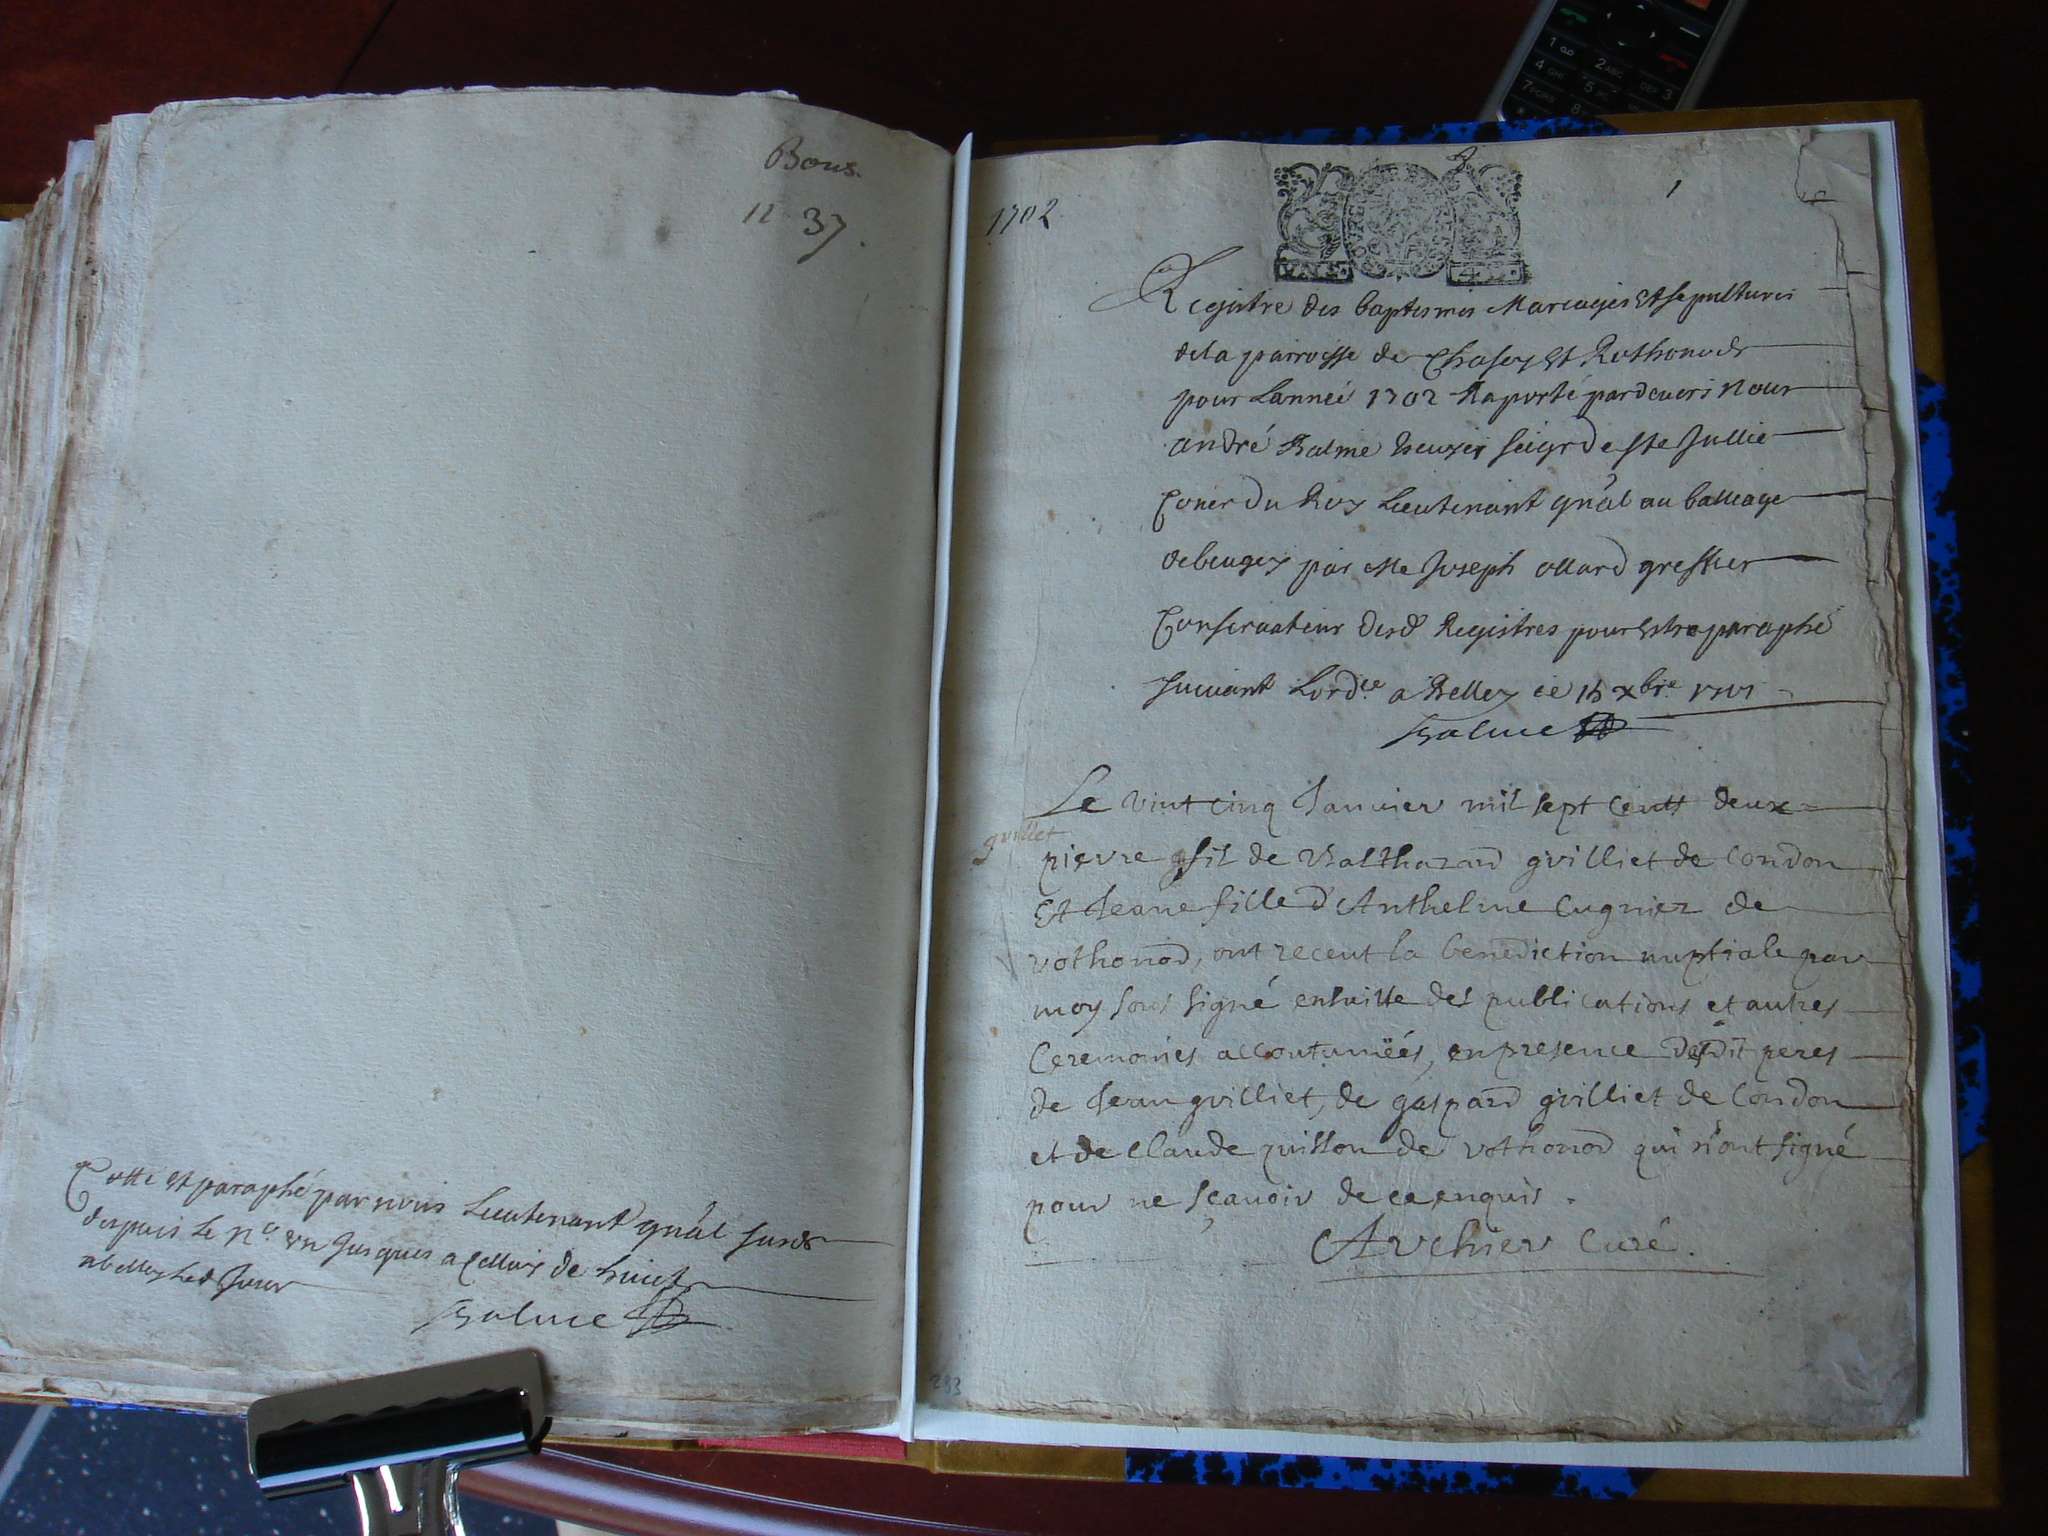 Bous.
12 37.
Cotté et paraphé par nous Lieutenant gnâl susd
despuis le n.º un Jusques a Celluy de huict
a belley led Jour
Balme
1702
1
Registre des baptesmes Mariages Et sepultures
de la parroisse de Chasey Et Rothonod
pour Lannéé 1702 Raporté pardevers Nous
andré Balme Escuyer seigr de ste Jullie
Coner du Roy Lieutenant gnâl au balliage
de beugey par Me Joseph ollard greffier
Conservateur desd Registres pour Estre paraphé
suivant Lordce a Belley ce 15 xbre 1701
Balme
guillet
Le vint cinq Janvier mil sept centt deux
pierre fil de Balthazard guilliet de Condon
Et Jeane fille d'Anthelme Cugnier de
rothonod, ont receut la benediction nuptiale par
moy sous signé ensuitte des publications et autres
Ceremonies accoutuméés, en presence desdit peres
de Jean guilliet, de gaspard guilliet de Condon
et de Claude quisson de rothonod qui n'ont signé
pour ne scavoir de ce enquis.
Archier Curé.
293